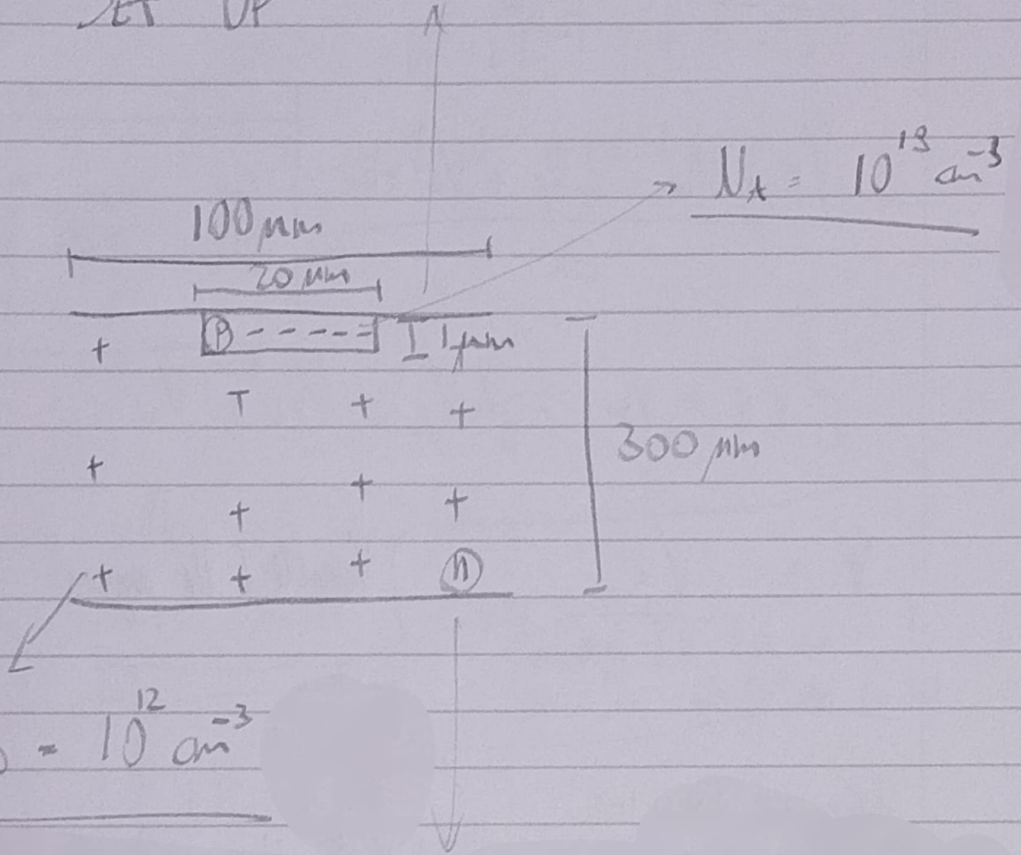 SET UP
N_A = 10^19 cm^-3
100 μm
20 μm
+ P - - - - = I 1 μm
T + +
+
300 μm
+ +
+
+ + + n
= 10^12 cm^-3